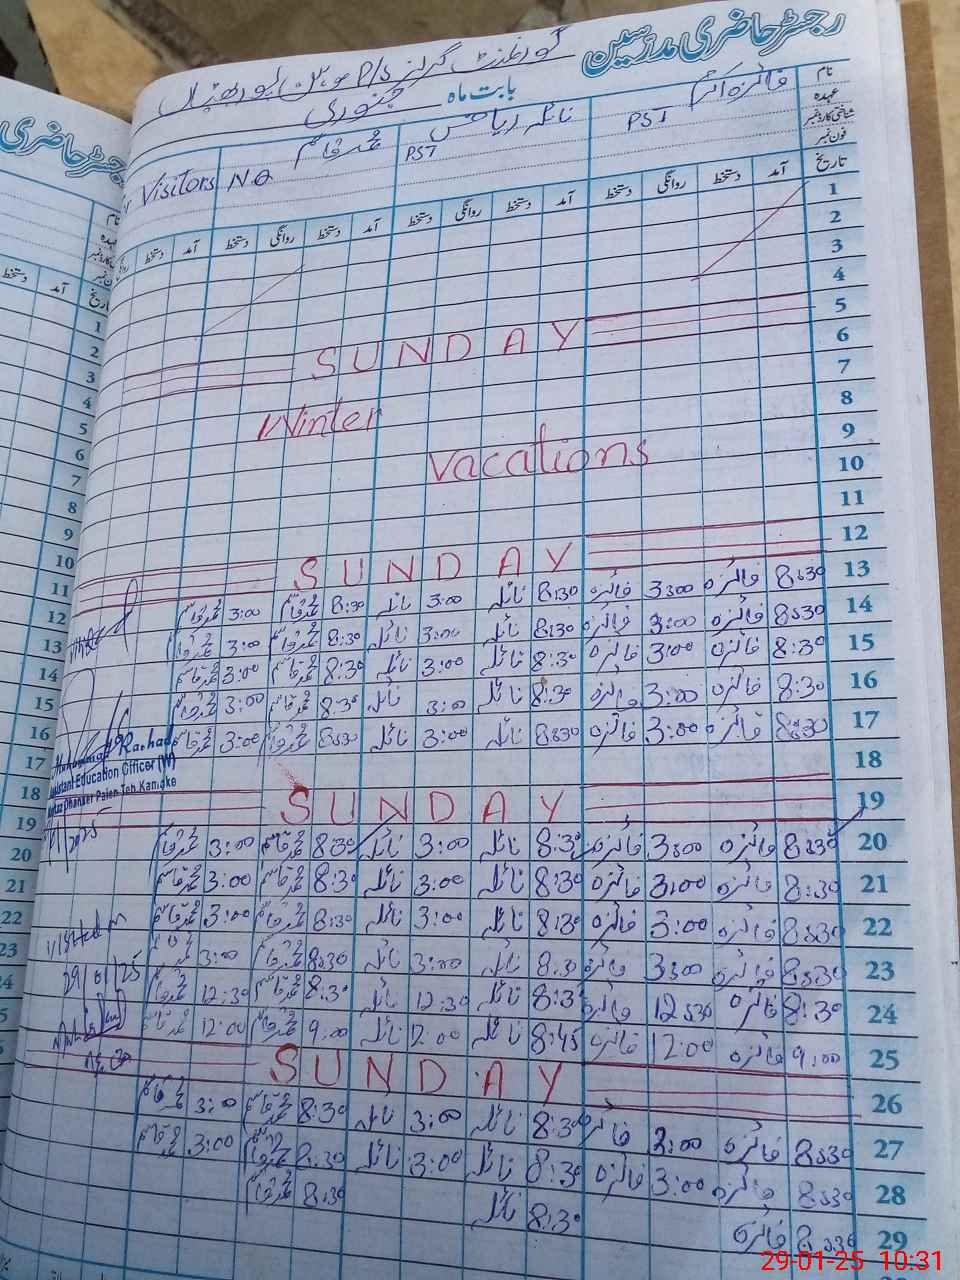 رجسٹر حاضری مدرسین
گورنمنٹ گرلز P/S
بابت ماہ جنوری
نام
عہدہ
شناختی کارڈ نمبر
فون نمبر
PST
نائلہ ریاض PST
محمد قاسم
Visitors No
تاریخ آمد دستخط روانگی دستخط آمد دستخط روانگی دستخط آمد دستخط روانگی دستخط آمد دستخط
1
2
3
4
5
SUNDAY
6
7
Winter
8
9
vacations
10
11
12
SUNDAY
13 8:30 فائزہ 3:00 فائزہ 8:30 نائلہ 3:00 نائلہ 8:30 محمد قاسم 3:00 محمد قاسم
14 8:30 فائزہ 3:00 فائزہ 8:30 نائلہ 3:00 نائلہ 8:30 محمد قاسم 3:00 محمد قاسم
15 8:30 فائزہ 3:00 فائزہ 8:30 نائلہ 3:00 نائلہ 8:30 محمد قاسم 3:00 محمد قاسم
16 8:30 فائزہ 3:00 فائزہ 8:30 نائلہ 3:00 نائلہ 8:30 محمد قاسم 3:00 محمد قاسم
17 8:30 فائزہ 3:00 فائزہ 8:30 نائلہ 3:00 نائلہ 8:30 محمد قاسم 3:00 محمد قاسم
Assistant Education Officer (W)
18
19
SUNDAY
20 8:30 فائزہ 3:00 فائزہ 8:30 نائلہ 3:00 نائلہ 8:30 محمد قاسم 3:00 محمد قاسم
21 8:30 فائزہ 3:00 فائزہ 8:30 نائلہ 3:00 نائلہ 8:30 محمد قاسم 3:00 محمد قاسم
22 8:30 فائزہ 3:00 فائزہ 8:30 نائلہ 3:00 نائلہ 8:30 محمد قاسم 3:00 محمد قاسم
23 8:30 فائزہ 3:00 فائزہ 8:30 نائلہ 3:00 نائلہ 8:30 محمد قاسم 3:00 محمد قاسم
24 8:30 فائزہ 12:30 فائزہ 8:30 نائلہ 12:30 نائلہ 8:30 محمد قاسم 12:30 محمد قاسم
25 9:00 فائزہ 12:00 فائزہ 8:45 نائلہ 12:00 نائلہ 9:00 محمد قاسم 12:00 محمد قاسم
visited
29/01/25
26
SUNDAY
27 8:30 فائزہ 3:00 فائزہ 8:30 نائلہ 3:00 نائلہ 8:30 محمد قاسم 3:00 محمد قاسم
28 8:30 فائزہ 3:00 فائزہ 8:30 نائلہ 3:00 نائلہ 8:30 محمد قاسم 3:00 محمد قاسم
29 8:30 فائزہ 8:30 نائلہ 8:30 محمد قاسم
29-01-25 10:31